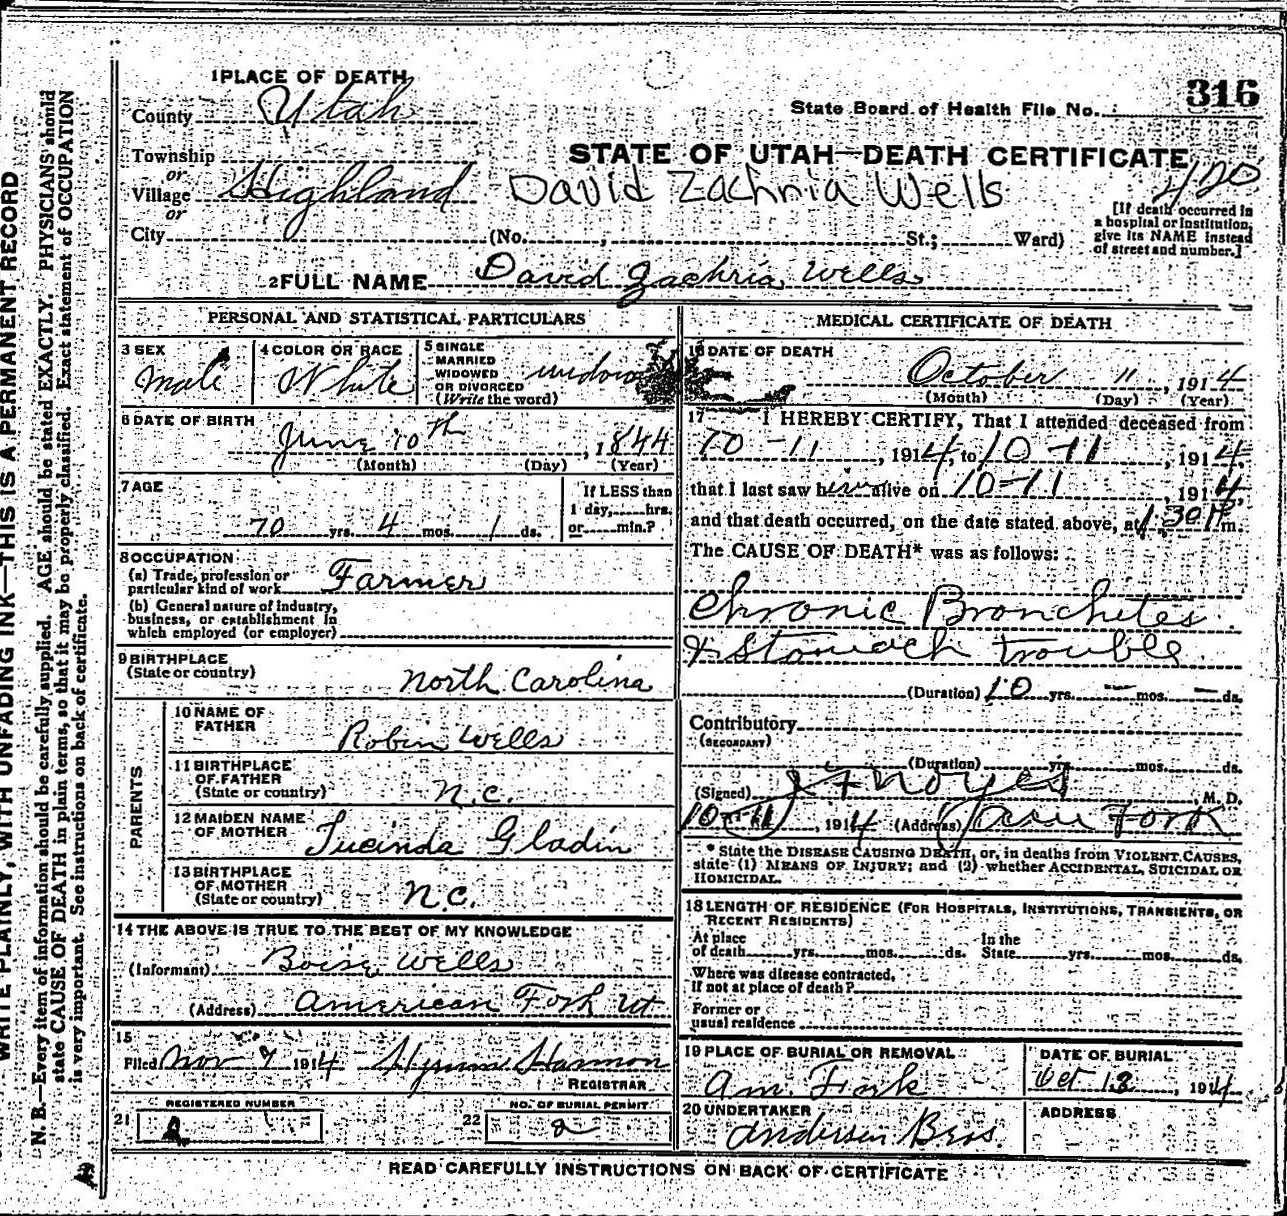 WRITE PLAINLY, WITH UNFADING INK—THIS IS A PERMANENT RECORD
N. B.—Every item of information should be carefully supplied. AGE should be stated EXACTLY. PHYSICIANS should
state CAUSE OF DEATH in plain terms, so that it may be properly classified. Exact statement of OCCUPATION
is very important. See instructions on back of certificate.
1 PLACE OF DEATH
County Utah
State Board of Health File No. 316
Township
or
Village Highland
or
City
STATE OF UTAH—DEATH CERTIFICATE
420
David Zachnia Wells
(No. , St.; Ward)
[If death occurred in
a hospital or institution,
give its NAME instead
of street and number.]
2 FULL NAME David Zachria Wells
PERSONAL AND STATISTICAL PARTICULARS
3 SEX
Male
4 COLOR OR RACE
White
5 SINGLE
MARRIED
WIDOWED
OR DIVORCED
(Write the word)
widow
6 DATE OF BIRTH
June 10th, 1844
(Month) (Day) (Year)
7 AGE
70 yrs. 4 mos. 1 ds.
If LESS than
1 day, hrs.
or min.?
8 OCCUPATION
(a) Trade, profession or
particular kind of work Farmer
(b) General nature of industry,
business, or establishment in
which employed (or employer)
9 BIRTHPLACE
(State or country)
North Carolina
PARENTS
10 NAME OF
FATHER
Robin Wells
11 BIRTHPLACE
OF FATHER
(State or country)
N.C.
12 MAIDEN NAME
OF MOTHER
Lucinda Gladin
13 BIRTHPLACE
OF MOTHER
(State or country)
N.C.
14 THE ABOVE IS TRUE TO THE BEST OF MY KNOWLEDGE
(Informant) Boise Wells
(Address) American Fork Ut
15
Filed Nov 9 1914
REGISTRAR
REGISTERED NUMBER
21
NO. OF BURIAL PERMIT
22 2
MEDICAL CERTIFICATE OF DEATH
16 DATE OF DEATH
October 11, 1914
(Month) (Day) (Year)
17 I HEREBY CERTIFY, That I attended deceased from
10-11, 1914, to 10-11, 1914,
that I last saw him alive on 10-11, 1914,
and that death occurred, on the date stated above, at 1.30 P m.
The CAUSE OF DEATH* was as follows:
Chronic Bronchetes
& Stomach trouble
(Duration) 10 yrs. — mos. — ds.
Contributory
(SECONDARY)
(Duration) yrs. mos. ds.
(Signed) Noyes, M. D.
10-11, 1914 (Address) Fork
* State the DISEASE CAUSING DEATH, or, in deaths from VIOLENT CAUSES,
state (1) MEANS OF INJURY; and (2) whether ACCIDENTAL, SUICIDAL OR
HOMICIDAL.
18 LENGTH OF RESIDENCE (FOR HOSPITALS, INSTITUTIONS, TRANSIENTS, OR
RECENT RESIDENTS)
At place
of death yrs. mos. ds.
In the
State yrs. mos. ds.
Where was disease contracted,
If not at place of death?
Former or
usual residence
19 PLACE OF BURIAL OR REMOVAL
Am. Fork
DATE OF BURIAL
Oct 13, 1914
20 UNDERTAKER
Andersen Bros.
ADDRESS
READ CAREFULLY INSTRUCTIONS ON BACK OF CERTIFICATE